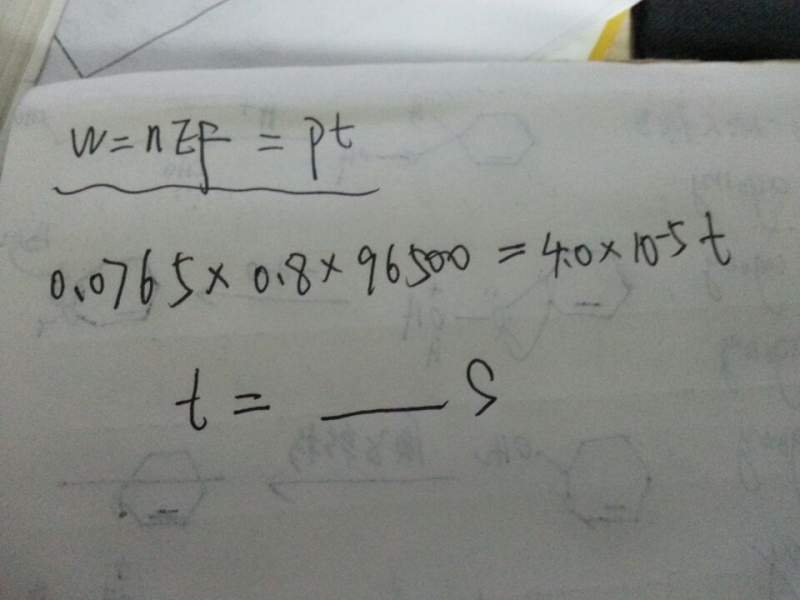 W=nEF=pt
0.0765×0.8×96500=4.0×10-5t
t=___S